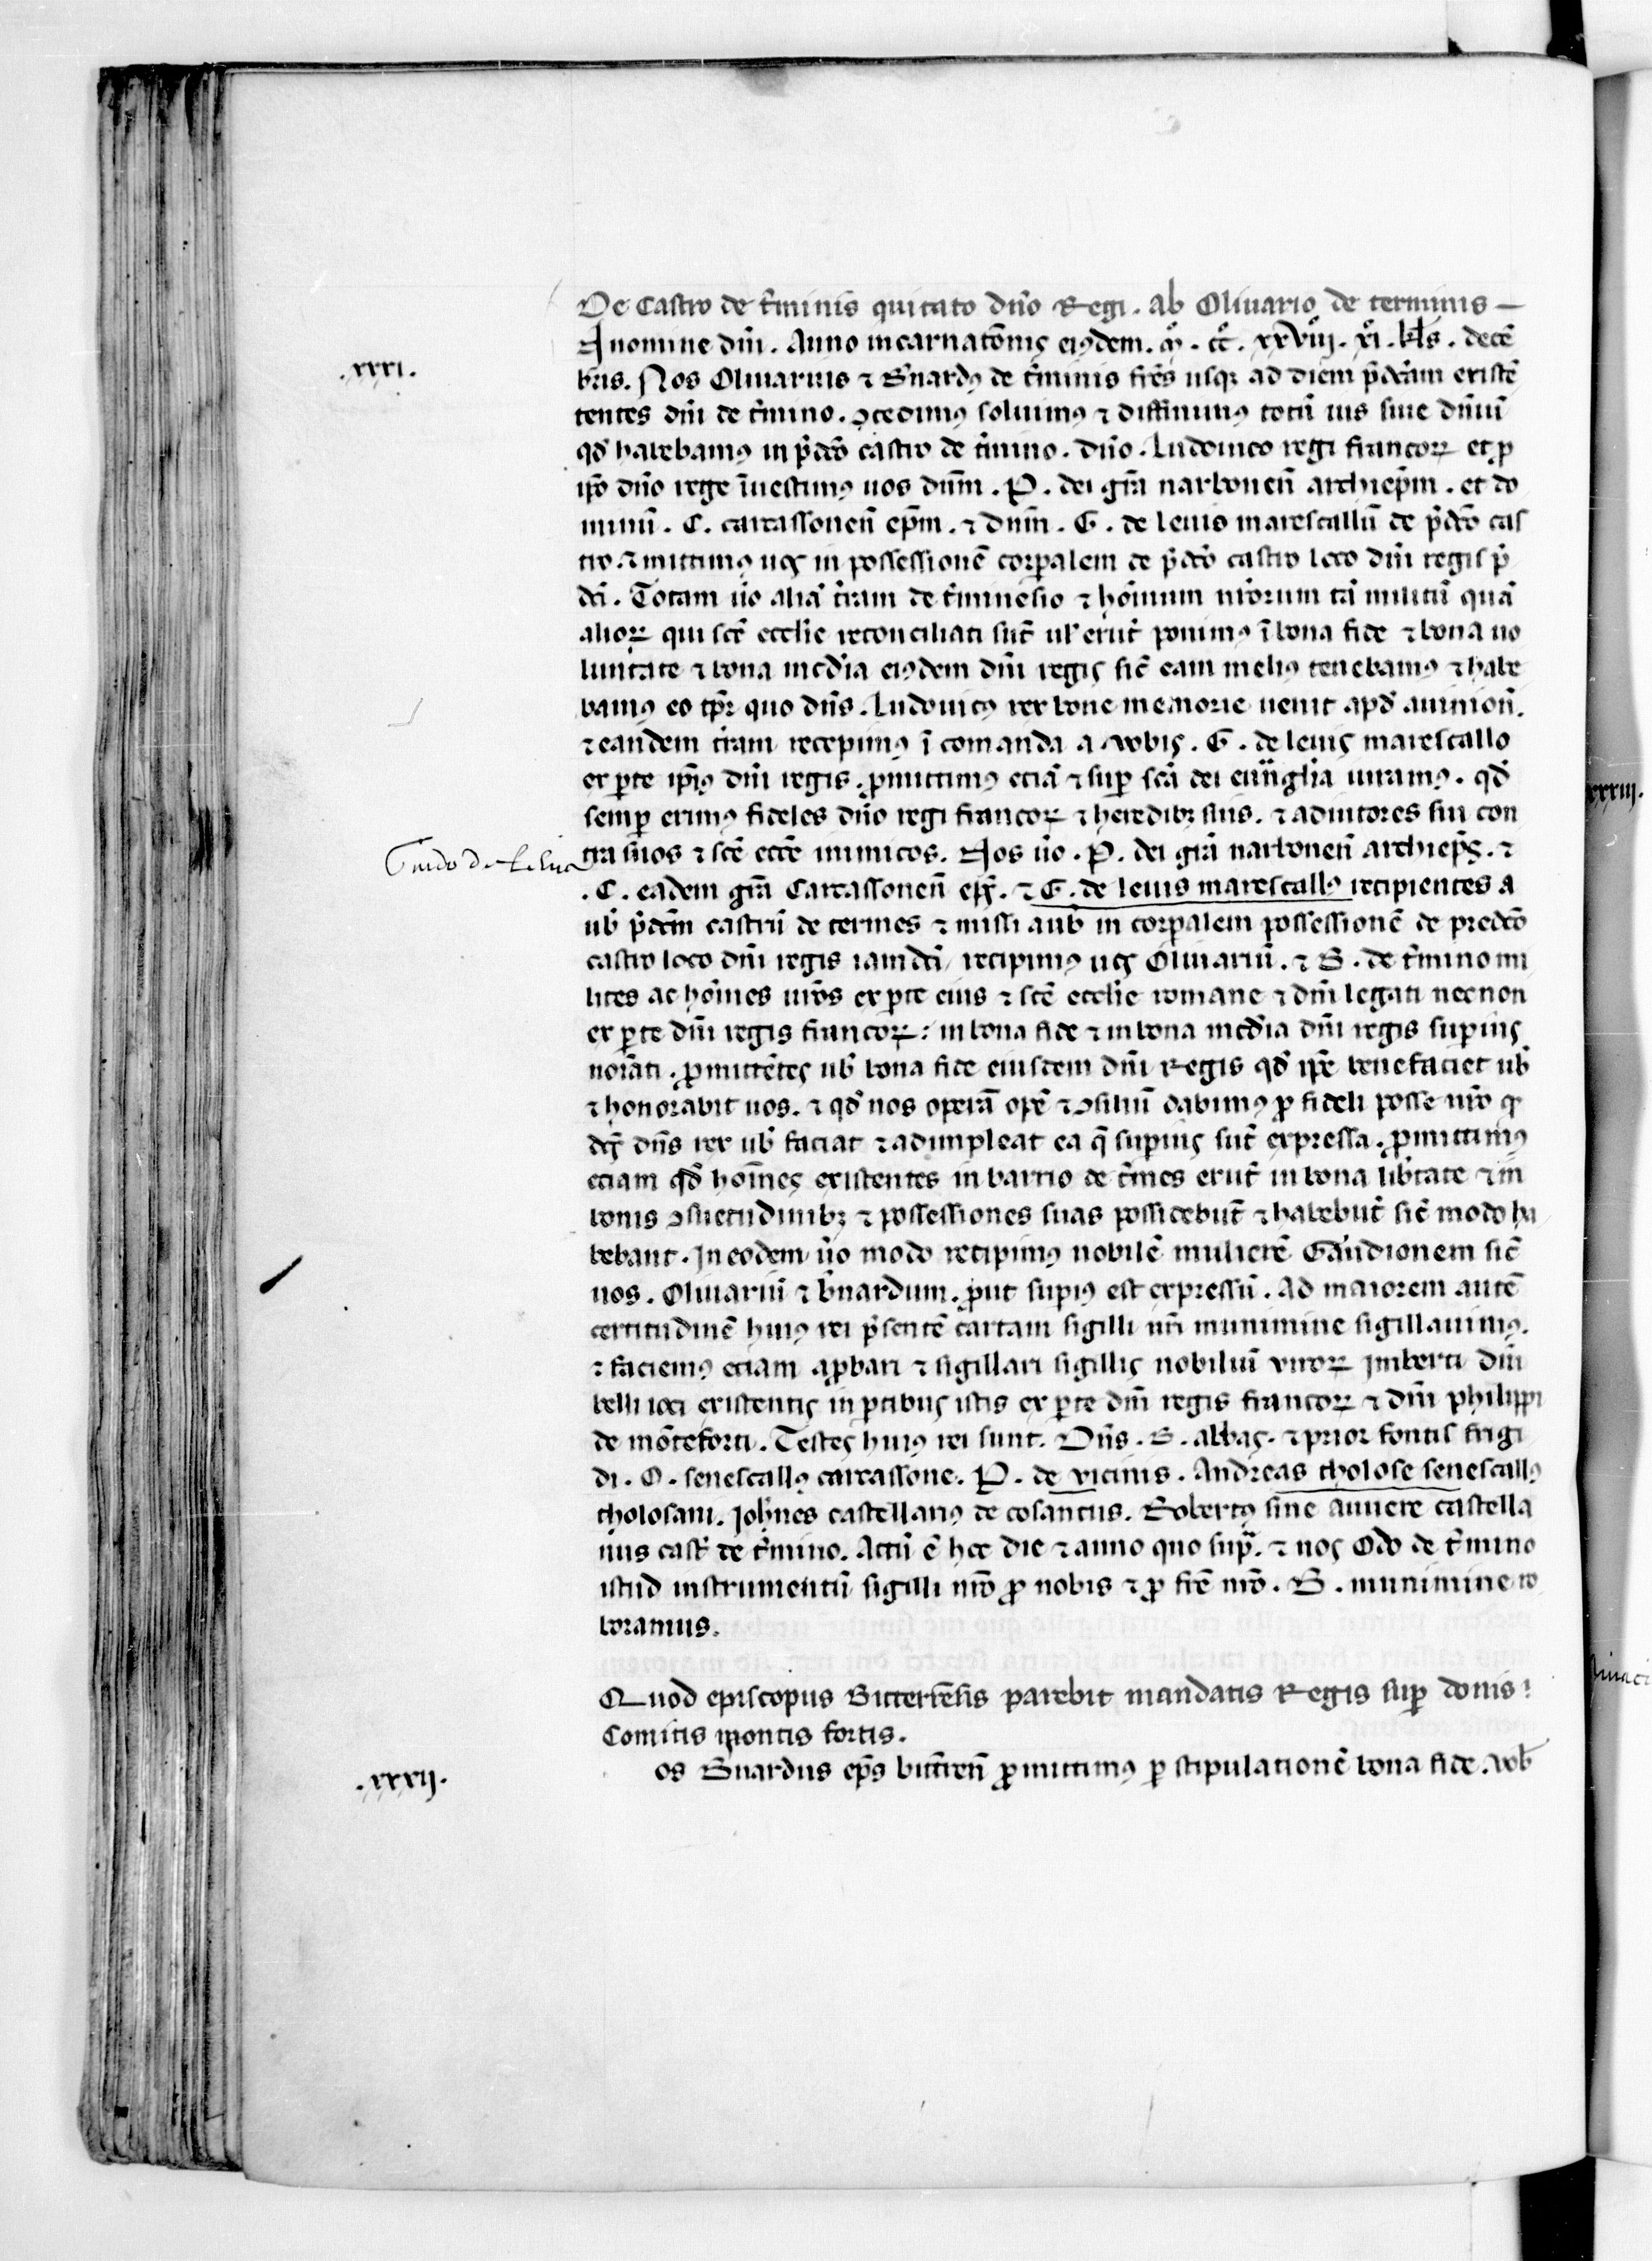 De Castro de t̄minis quitato dn̄o Regi. ab Oliuario de terminis —
.xxxi.
In nomine dn̄i. Anno incarnatōnis eiꝰdem. mͦ. ccͦ. xxviijͦ. xiͦ. kl̄s. decē
bris. Nos Oliuarius ⁊ B̄nardꝰ de t̄minis frēs usqꝫ ad diem p̄dc̄am existē
tentes dn̄i de t̄mino. ꝯcedimꝰ soluimꝰ ⁊ diffinimꝰ totū ius siue dn̄iū
qd̄ habebamꝰ in p̄dc̄o castro de t̄mino. dn̄o. Ludouico regi francoꝝ et ꝓ
ip̄o dn̄o rege īuestimꝰ uos dn̄m. P. dei gr̄a narbonen̄ archiep̄m. et do
minū. C. carcassonen̄ ep̄m. ⁊ dn̄m. G. de leuis marescallū de p̄dc̄o cas
tro ⁊ mittimꝰ uos in possessionē corꝑalem de p̄dc̄o castro loco dn̄i regis p̄
dc̄i. Totam ūo aliā t̄ram de t̄minesio ⁊ hōinum nr̄orum tā militū quā
alioꝝ qui scē ecclīe reconciliati sūt ul̄ erūt ponimꝰ ī bona fide ⁊ bona uo
luntate ⁊ bona mcd̄ia eiꝰdem dn̄i regis sic̄ eam meliꝰ tenebamꝰ ⁊ habe
bamꝰ eo tp̄r quo dn̄s. Ludouicꝰ rex bone memorie uenit apd̄ auinion̄.
⁊ eandem t̄ram recepimꝰ ī comanda a uobis. G. de leuis marescallo
ex ꝑte ip̄iꝰ dn̄i regis. ꝓmittimꝰ eciā ⁊ suꝑ scā dei euūglīa iuramꝰ. qd̄
semꝑ erimꝰ fideles dn̄o regi francoꝝ ⁊ heredibꝫ suis. ⁊ adiutores sui con
Guido de Leluia
tra suos ⁊ scē ecc̄e inimicos. Nos ūo. P. dei gr̄a narbonen̄ archiep̄s. ⁊
.C. eadem gr̄a Carcassonen̄ ep̄s. ⁊ G. de leuis marescallꝰ recipientes a
ub̄ p̄dc̄m castrū de termes ⁊ missi a ub̄ in corꝑalem possessionē de predc̄o
castro loco dn̄i regis iamdc̄i, recipimꝰ uos Oliuariū. ⁊ B. de t̄mino mi
lites ac hōines ur̄os ex ꝑte eius ⁊ scē ecclīe romane ⁊ dn̄i legati necnon
ex ꝑte dn̄i regis francoꝝ: in bona fide ⁊ in bona mcd̄ia dn̄i regis suꝑius
noīati. ꝓmittētes ub̄ bona fide eiusdem dn̄i Regis qd̄ ip̄e benefaciet ub̄
⁊ honorabit uos. ⁊ qd̄ nos operā opē ⁊ ꝯsiliū dabimꝰ ꝓ fideli posse nr̄o qͥ
dc̄s dn̄s rex ub̄ faciat ⁊ adimpleat ea q̄ suꝑius sūt expressa. ꝓmittimꝰ
eciam qd̄ hōines existentes in barrio de t̄mes erūt in bona lib̄tate ⁊ in
bonis ꝯsuetudinibꝫ ⁊ possessiones suas possidebūt ⁊ habebūt sic̄ modo ha
bebant. In eodem ūo modo recipimꝰ nobilē mulierē Gaudionem sic̄
uos. Oliuariū ⁊ b̄nardum. ꝓut supiꝰ est expressū. Ad maiorem autē
certitudinē huiꝰ rei p̄sentē cartam sigilli nr̄i munimine sigillauimꝰ.
⁊ faciemꝰ eciam aꝓbari ⁊ sigillari sigillis nobiliū viroꝝ Imberti dn̄i
belli ioci existentis in ꝑtibus istis ex ꝑte dn̄i regis francoꝝ ⁊ dn̄i philippi
de mōteforti. Testes huiꝰ rei sunt. Dn̄s. B. abbas. ⁊ prior fontis frigi
di. O. senescallꝰ carcassone. P. de vicinis. Andreas tholose senescallꝰ
tholosani. Joh̄nes castellanꝰ de cosancus. Robertꝰ sine auuere castella
nus cast̄ de t̄mino. Actū ē hoc die ⁊ anno quo supͣ. ⁊ nos Odo de t̄mino
istud instrumentū sigilli nr̄o ꝓ nobis ⁊ ꝓ fr̄e nr̄o. B. munimine ro
boramus.
Quod episcopus Bitterrēsis parebit mandatis Regis suꝑ donis:
Comitis montis fortis.
.xxxij.
os B̄nardus ep̄s bitt̄ren̄ ꝓmittimꝰ ꝑ stipulationē bona fide. vob̄